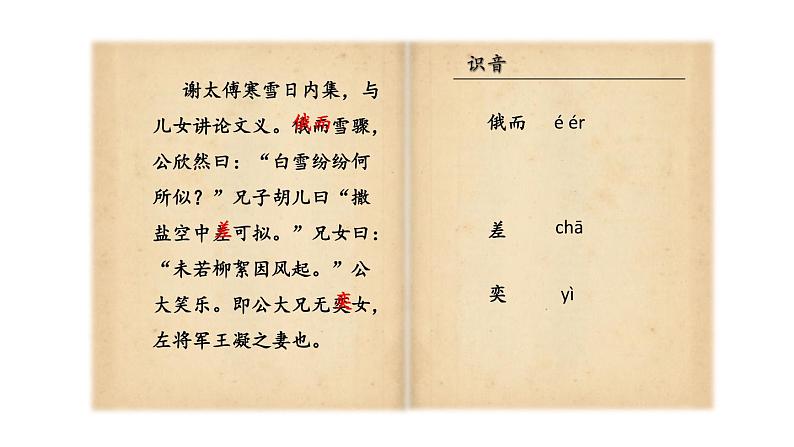 谢太傅寒雪日内集，与
儿女讲论文义。俄而雪骤，
公欣然曰：“白雪纷纷何
所似？”兄子胡儿曰“撒
盐空中差可拟。”兄女曰：
“未若柳絮因风起。”公
大笑乐。即公大兄无奕女，
左将军王凝之妻也。
识音
俄而 é ér
差 chā
奕 yì